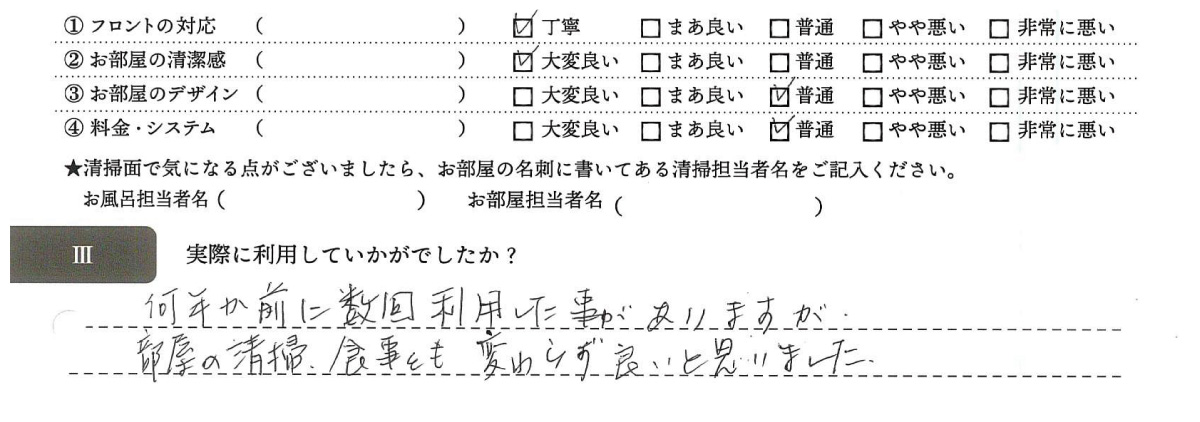 ① フロントの対応 ( ) ☑ 丁寧 □ まあ良い □ 普通 □ やや悪い □ 非常に悪い
② お部屋の清潔感 ( ) ☑ 大変良い □ まあ良い □ 普通 □ やや悪い □ 非常に悪い
③ お部屋のデザイン ( ) □ 大変良い □ まあ良い ☑ 普通 □ やや悪い □ 非常に悪い
④ 料金・システム ( ) □ 大変良い □ まあ良い ☑ 普通 □ やや悪い □ 非常に悪い
★清掃面で気になる点がございましたら、お部屋の名刺に書いてある清掃担当者名をご記入ください。
お風呂担当者名 ( ) お部屋担当者名 ( )
Ⅲ 実際に利用していかがでしたか？
何年か前に数回利用した事がありますが、
部屋の清掃、食事とも変わらず良いと思いました。